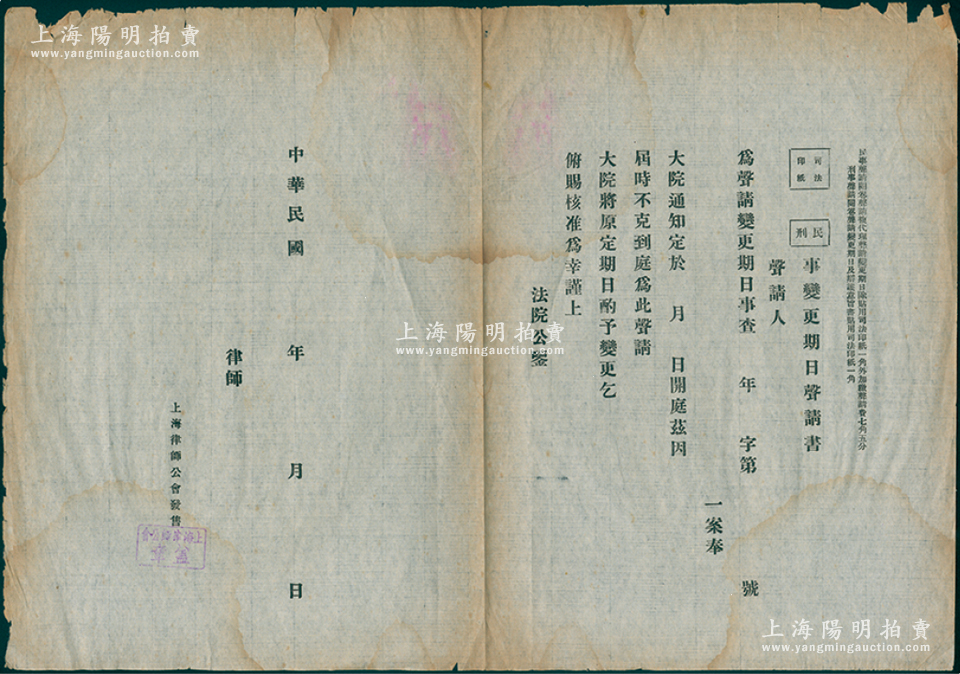 上海陽明拍賣
www.yangmingauction.com
民事聲請閱卷聲請複代理聲請變更期日除貼用司法印紙一角外加繳聲請費七角五分
刑事聲請閱卷聲請變更期日及辯論意旨書貼用司法印紙一角
司法
印紙
民
刑
事變更期日聲請書
聲請人
為聲請變更期日事查 年 字第 號
一案奉
大院通知定於 月 日開庭茲因
屆時不克到庭為此聲請
大院將原定期日酌予變更乞
俯賜核准為幸謹上
法院公鑒
中華民國 年 月 日
律師
上海律師公會發售
上海律師公會
蓋章
上海陽明拍賣
www.yangmingauction.com
上海陽明拍賣
www.yangmingauction.com